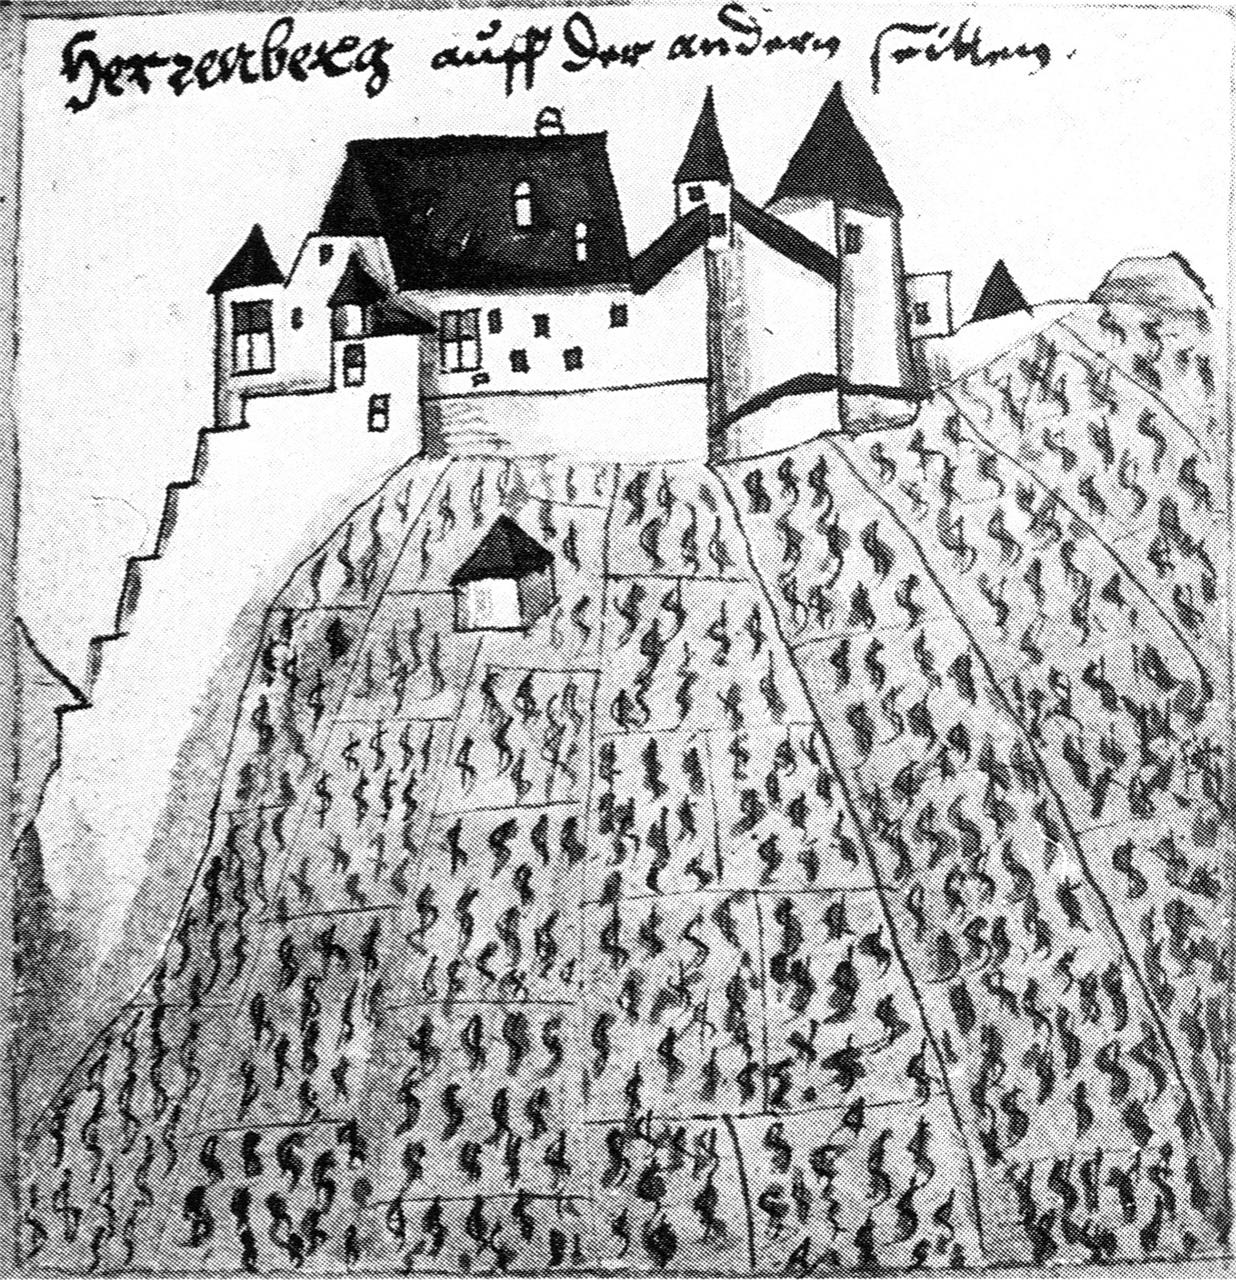 Herzenberg auff der andern seitten.